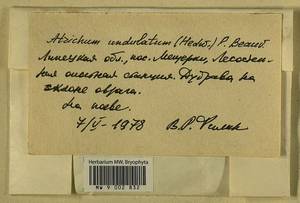 Atrichum undulatum (Hedw.) P. Beauv.
Липецкая обл., пос. Мещерка, Лесостеп-
ная опытная станция. Дубрава на
склоне оврага.
На почве.
7/V - 1978 В.Р.
Herbarium MW, Bryophyta
MW 9 002 832